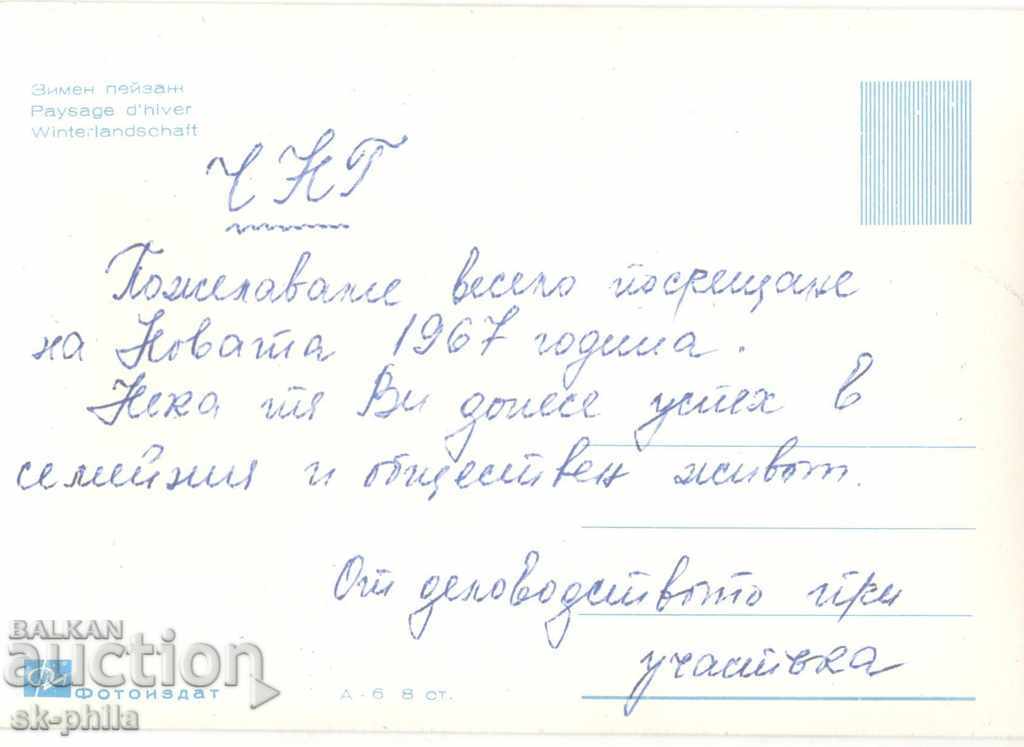 Зимен пейзаж
Paysage d'hiver
Winterlandschaft
ЧНГ
Пожелаваме весело посрещане
на Новата 1967 година.
Нека тя Ви донесе успех в
семейния и обществен живот.
От деловодството при
участъка
BALKAN
auction
Фотоиздат
А-6 8 ст.
sk-phila